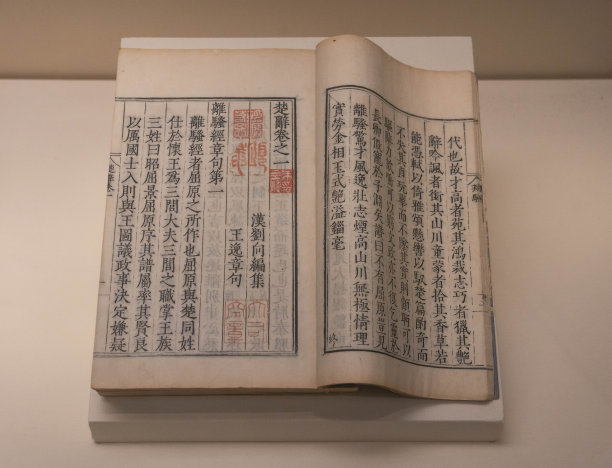 代也故才高者苑其鴻裁志巧者獵其艷
辭吟諷者銜其山川童蒙者拾其香草若
能憑軾以倚雅頌懸轡以馭楚篇酌奇而
不失其貞玩華而不墜其實則顧盼可以
乞靈於
長卿假寵於子淵矣讚曰不有屈原豈見
離騷驚才風逸壯志煙高山川無極情理
實勞金相玉式艷溢錙毫
終
楚辭卷之一
漢劉向編集
王逸章句
離騷經章句第一
離騷經者屈原之所作也屈原與楚同姓
仕於懷王為三閭大夫三閭之職掌王族
三姓曰昭屈景屈原序其譜屬率其賢良
以厲國士入則與王圖議政事決定嫌疑